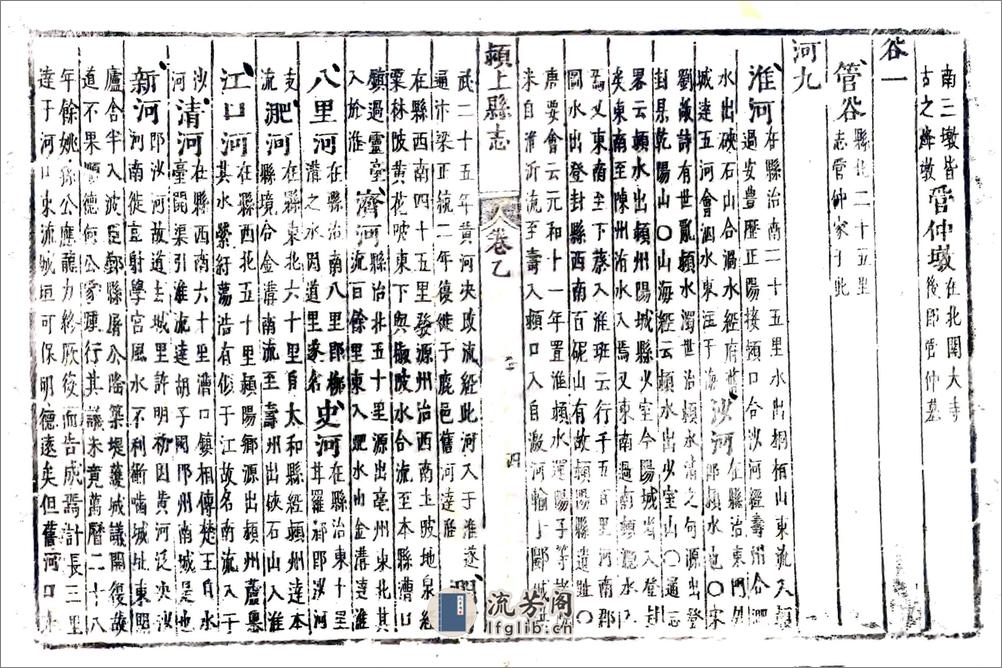 南三墩皆 管仲墩 在北関大寺
古之烽墩 後即管仲墓
谷一
管谷 縣北二十五里
志管仲家于此
河九
淮河 在縣治南二十五里水出桐栢山東流入潁
過安豊歷正陽接潁口合沙河經壽州合淝
水出硤石山合渦水經府 沙河 在縣治東門外
城達五河會泗水東注于海 即潁水也〇宋
劉敞詩有世亂潁水濁世治潁水清之句源出登
封縣乾陽山〇山海經云潁水出少室山〇通志
畧云潁水出潁州陽城縣少室今陽城省入登封
矣東南至陳州 水入焉又東南過南頓 水入
焉又東南至下蔡入淮班云行千五百里河南郡
圖水出登封縣西南百 山有故潁陽縣遺趾〇
唐要會云元和十一年置 潁水運 陽子等
來自淮泝流至壽入潁口入自溵河輸于郾城
潁上縣志
卷乙
四
武二十五年黄河决改流經此河入于淮遂
遍汴梁正統二年後徙于鹿邑舊河達淮 潤河
在縣西南四十五里發源州治西南土陂地泉經
栗林陂黄花陂東下與椒陂水合流至本縣漕口
鎮過靈臺 濟河 在縣治北五十里源出亳州東北其
入於淮 流百餘里東入淝水山金溝達淮
八里河 在縣治南八里即柳 史河 在縣治東十里
灌之水因道里家名 耳羅 郡沙河
支 淝河 在縣東北六十里自太和縣經潁州達本
流 縣境合金溝南流至壽州出硤石山入淮
江口河 在縣西北五十里潁陽鄉源出潁州蘆塲
其水縈紆蕩浩有似于江故名南流入于
沙 清河 在縣西南六十里漕口鎮相傳楚王自水
河 臺開渠引淮流達胡子國即州南城是地
新河 即沙河故道去城里許明初因黄河泛决沙
河南徙直射學宫風水不利衝嚙城址東關
廬舍半入波臣鄭縣屠公隆築堤䕶城議開復故
道不果 德何公冢 行其議未竟萬曆二十八
年餘姚孫公應龍力終厥役而告成焉計長三里
達于河口東流城垣可保明德遠矣但舊河口水
流芳阁
lfglib.cn